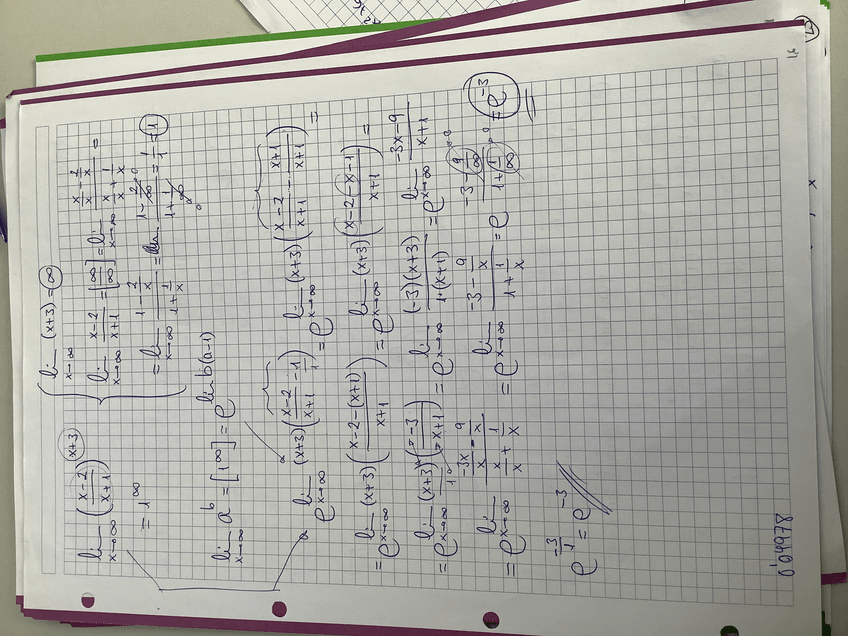 lim x→∞ ((x-2)/(x+1))^(x+3) = 1^∞
lim x→∞ (x+3) = ∞
lim x→∞ (x-2)/(x+1) = [∞/∞] = lim x→∞ (x/x - 2/x)/(x/x + 1/x) =
= lim x→∞ (1 - 2/x)/(1 + 1/x) = lim (1 - 2/∞)/(1 + 1/∞) = 1/1 = 1
lim x→∞ a^b = [1^∞] = e^(lim b(a-1))
e^(lim x→∞ (x+3)((x-2)/(x+1) - 1/1)) = e^(lim x→∞ (x+3)((x-2)/(x+1) - (x+1)/(x+1))) =
= e^(lim x→∞ (x+3)((x-2-(x+1))/(x+1))) = e^(lim x→∞ (x+3)((x-2-x-1)/(x+1))) =
= e^(lim x→∞ (x+3)/1 (-3/(x+1))) = e^(lim x→∞ (-3)(x+3)/(1·(x+1))) = e^(lim x→∞ (-3x-9)/(x+1))
= e^(lim x→∞ (-3x/x - 9/x)/(x/x + 1/x)) = e^(lim x→∞ (-3 - 9/x)/(1 + 1/x)) = e^((-3 - 9/∞)/(1 + 1/∞)) = e^-3
e^(-3/1) = e^-3
0'04978